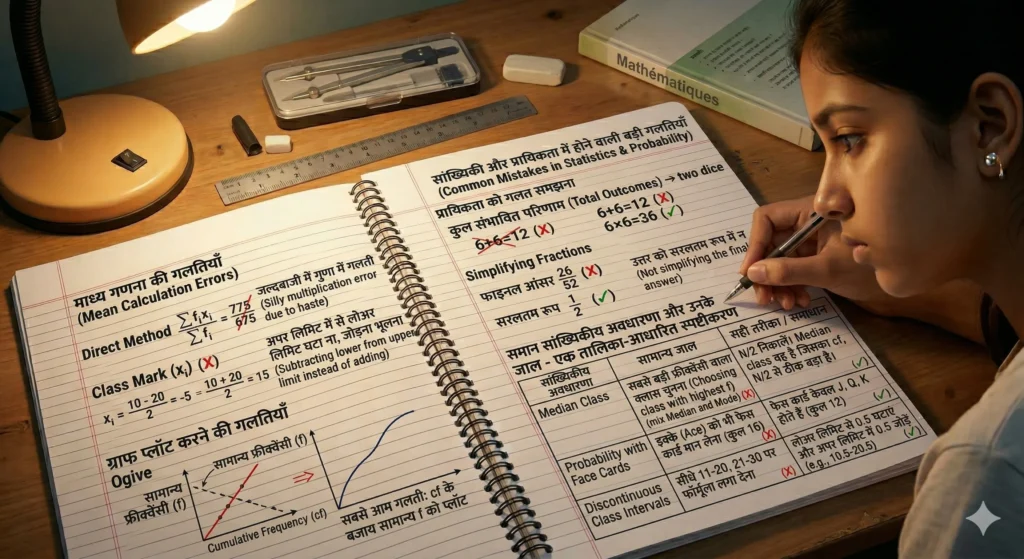 Mathématiques
माध्य गणना की गलतियाँ
(Mean Calculation Errors)
Direct Method ∑ fᵢxᵢ / ∑ fᵢ = 775 / 675
जल्दबाजी में गुणा में गलती
(Silly multiplication error
due to haste)
Class Mark (xᵢ) (X)
xᵢ = 10 - 20 / 2 = -5 = 10 + 20 / 2 = 15
अपर लिमिट में से लोअर
लिमिट घटा ना, जोड़ना भूलना
(Subtracting lower from upper
limit instead of adding)
ग्राफ प्लॉट करने की गलतियाँ
Ogive
सामान्य फ्रीक्वेंसी (f)
सामान्य
फ्रीक्वेंसी (f)
Cumulative Frequency (cf)
सबसे आम गलती: cf के
बजाय सामान्य f को प्लॉट
सांख्यिकी और प्रायिकता में होने वाली बड़ी गलतियाँ
(Common Mistakes in Statistics & Probability)
प्रायिकता को गलत समझना
कुल संभावित परिणाम (Total Outcomes) → two dice
6+6=12 (X)
6+6=12 (X)
6×6=36 (✓)
Simplifying Fractions
फाइनल आंसर 26/52 (X)
सरलतम रूप 1/2 (✓)
उत्तर को सरलतम रूप में न
(Not simplifying the final
answer)
समान सांख्यिकीय अवधारणा और उनके
जाल - एक तालिका-आधारित स्पष्टीकरण
सांख्यिकीय
अवधारणा
सामान्य जाल
सही तरीका / समाधान
Median Class
सबसे बड़ी फ्रीक्वेंसी वाला
क्लास चुनना (Choosing
class with highest f)
(mix Median and Mode) (X)
N/2 निकालें। Median
class वह है जिसका cf,
N/2 से ठीक बड़ा है।
✓
Probability with
Cards
इक्के (Ace) को भी फेस
कार्ड मान लेना (कुल 16) (X)
फेस कार्ड केवल J, Q, K
होते हैं (कुल 12) ✓
Discontinuous
Class Intervals
सीधे 11-20, 21-30 पर
फॉर्मूला लगा देना (X)
लोअर लिमिट से 0.5 घटाएं
और अपर लिमिट में 0.5 जोड़ें
(e.g., 10.5-20.5) ✓